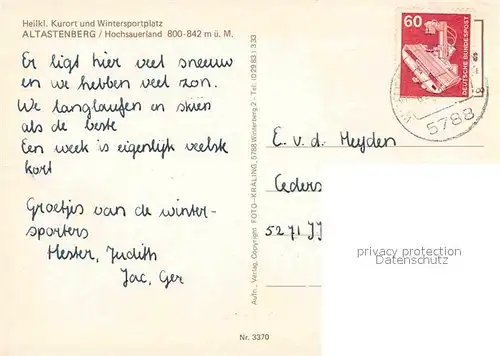 Heilkl. Kurort und Wintersportplatz
ALTASTENBERG / Hochsauerland 800-842 m ü. M.
Er ligt hier veel sneeuw
en we hebben veel zon.
We langlaufen en skiën
als de beste
Een week is eigenlijk veelste
kort
Groetjes van de winter-
sporters
Hester, Judith
Jac, Ger
Aufn., Verlag, Copyright FOTO-KRALING, 5788 Winterberg 2 - Tel. (0 29 83) 3 33
Nr. 3370
60
DEUTSCHE BUNDESPOST
5788
E. v. d. Heyden
Ceders
5271 JJ
privacy protection
Datenschutz